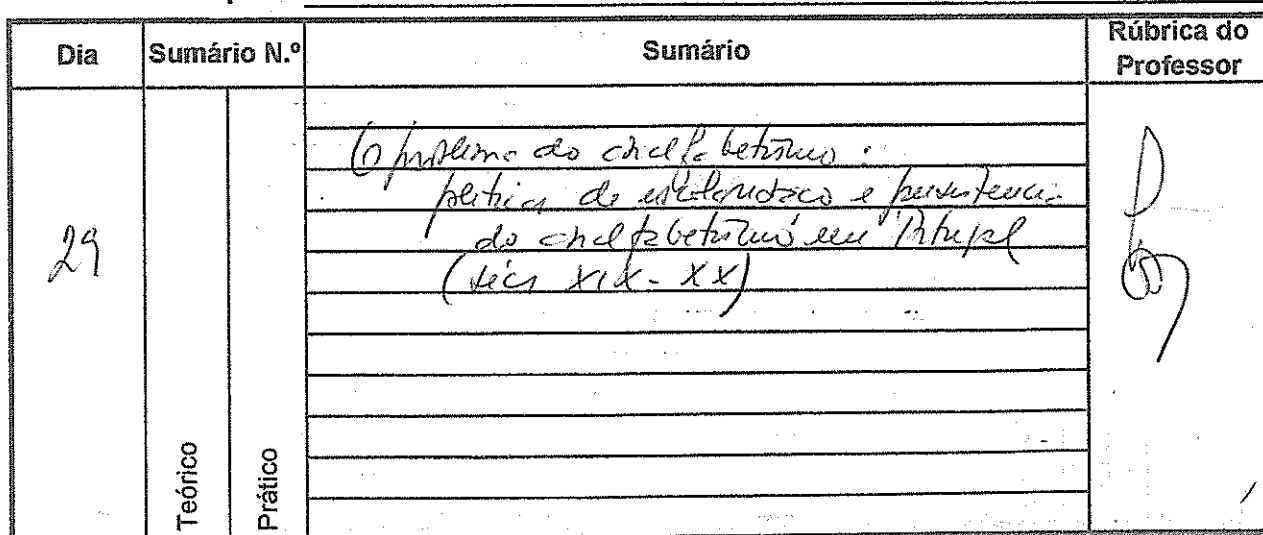 Dia Sumário N.º Sumário Rúbrica do Professor
29
Teórico
Prático
O problema do analfabetismo:
políticas de escolarização e persistência
do analfabetismo em Portugal
(sécs XIX-XX)